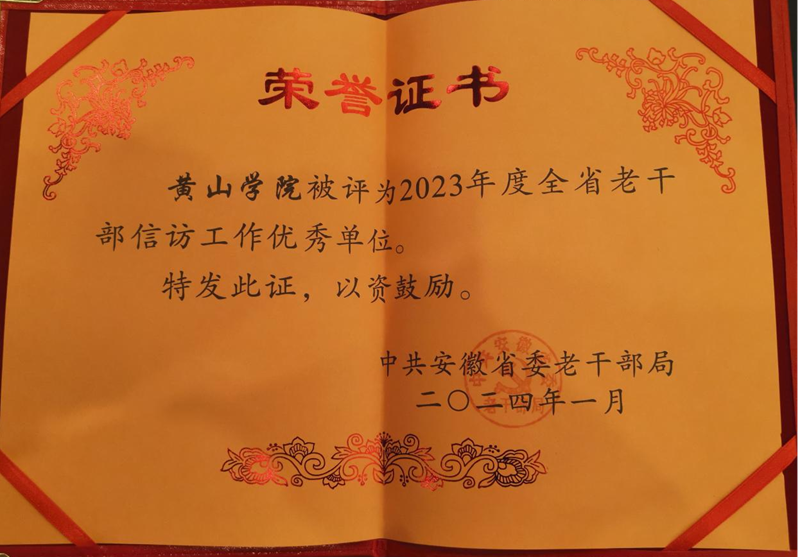 荣誉证书
黄山学院被评为2023年度全省老干
部信访工作优秀单位。
特发此证，以资鼓励。
中共安徽省委老干部局
二〇二四年一月